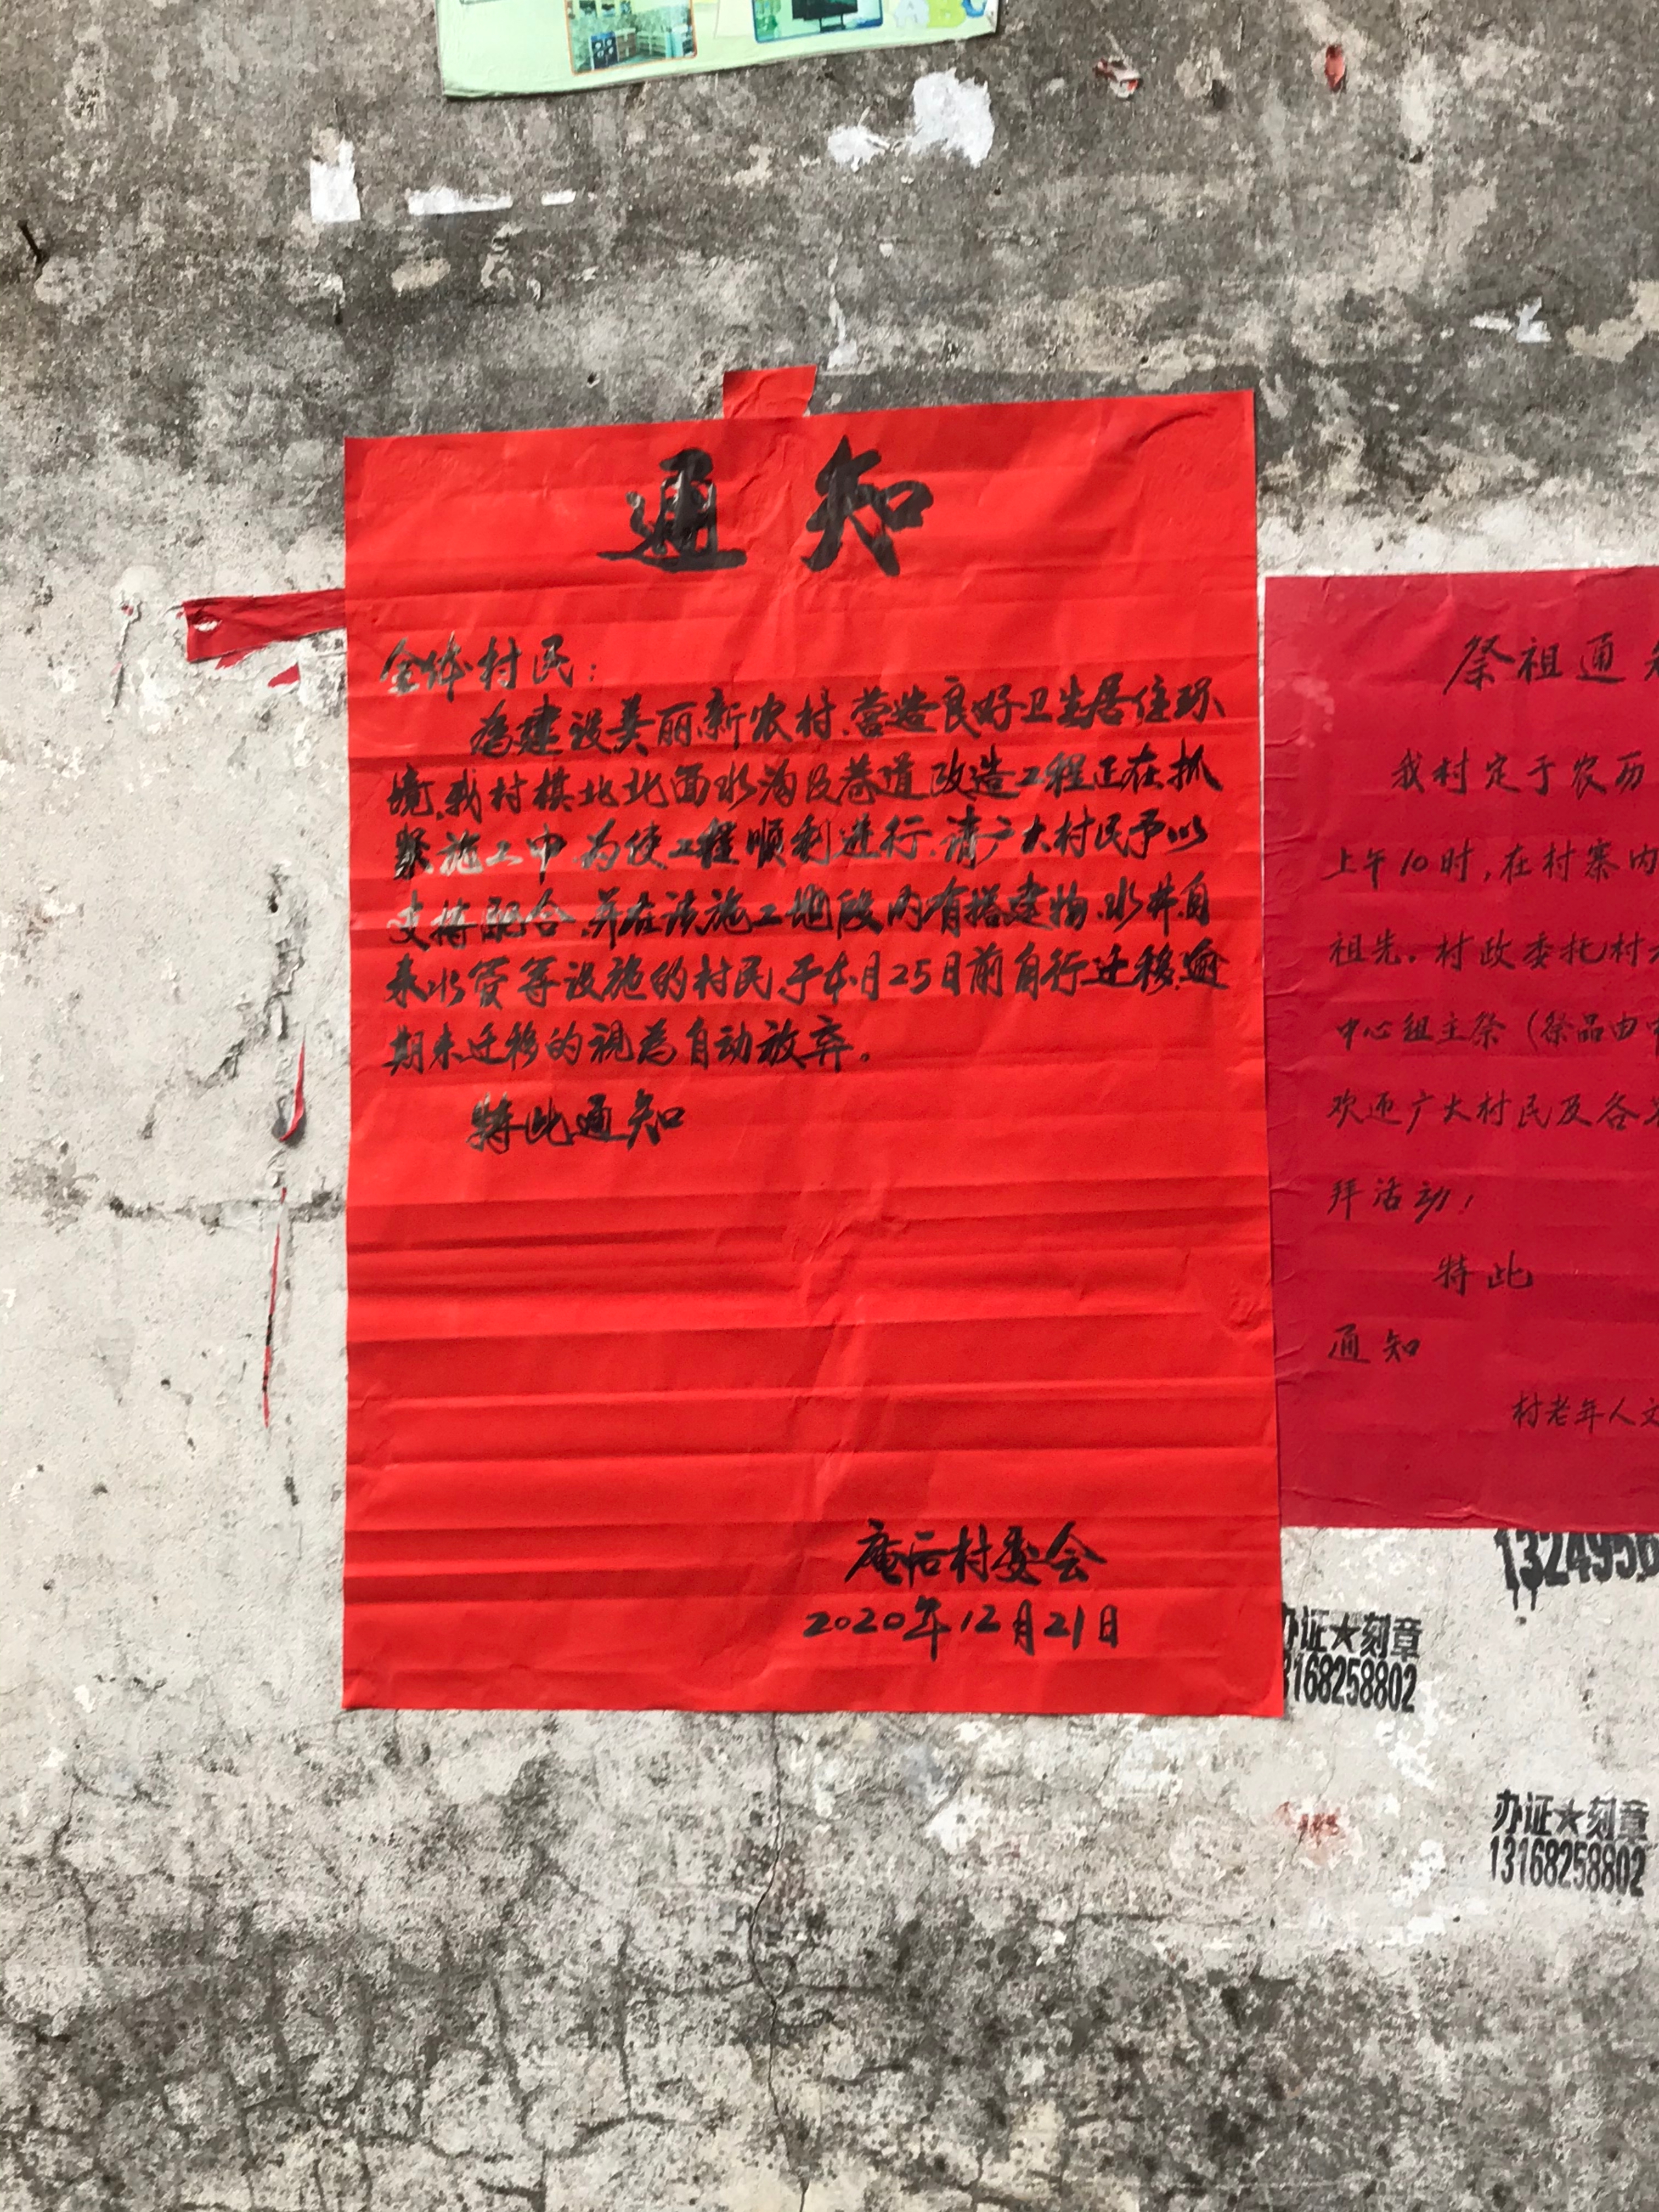 通知
全体村民：
为建设美丽新农村、营造良好卫生居住环
境,我村棋北北面水沟及巷道改造工程正在抓
紧施工中.为使工程顺利进行.请广大村民予以
支持配合.并在该施工地段内有搭建物.水井.自
来水管等设施的村民.于本月25日前自行迁移.逾
期未迁移的视为自动放弃。
特此通知
庵后村委会
2020年12月21日
祭祖通知
我村定于农历
上午10时,在村寨内
祖先.村政委托村
中心组主祭(祭品由
欢迎广大村民及各
拜活动!
特此
通知
村老年人文
1324956
办证★刻章
13168258802
办证★刻章
13168258802
ABC